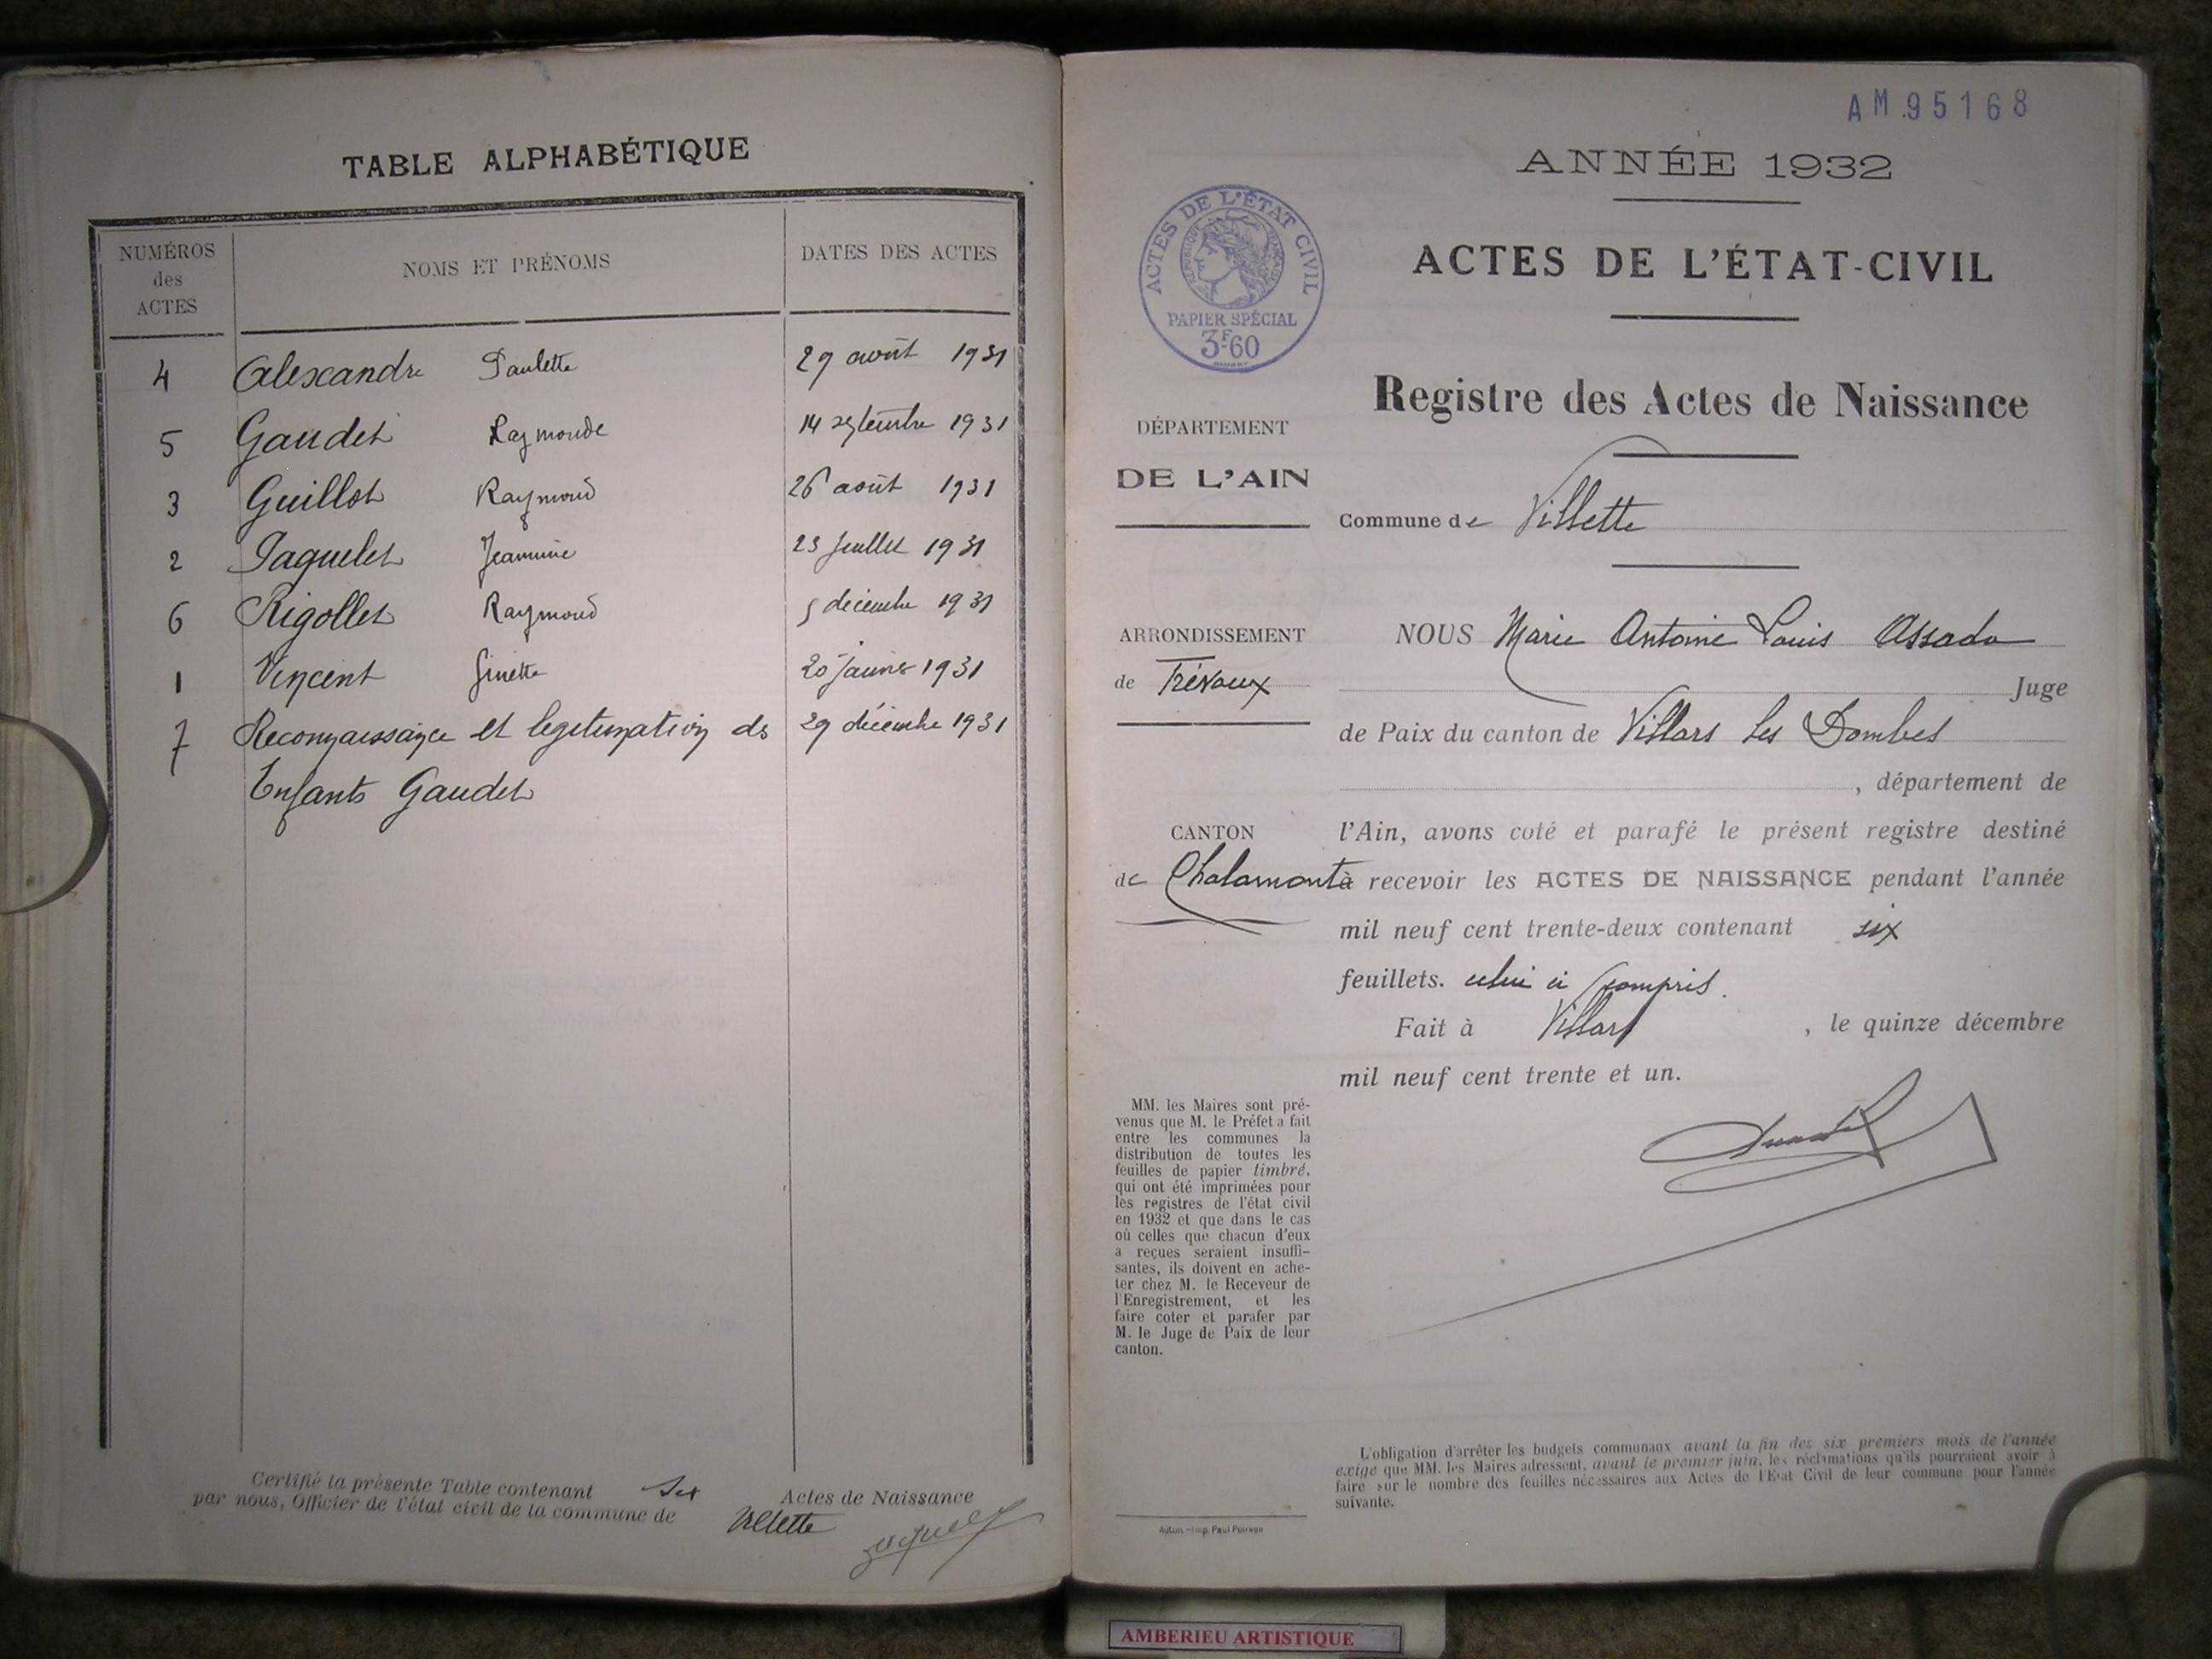 TABLE ALPHABÉTIQUE
NUMÉROS des ACTES NOMS ET PRÉNOMS DATES DES ACTES
4 Alexandre Paulette 29 août 1931
5 Gaudet Raymonde 14 septembre 1931
3 Guillot Raymond 26 août 1931
2 Jaquelet Jeannine 23 juillet 1931
6 Rigollet Raymond 5 décembre 1931
1 Vincent Ginette 20 janvier 1931
7 Reconnaissance et legitimation ds 29 décembre 1931
Enfants Gaudet
Certifié la présente Table contenant Actes de Naissance
par nous, Officier de l'état civil de la commune de Villette
AM.95168
ANNÉE 1932
ACTES DE L'ÉTAT-CIVIL
ACTES DE L'ÉTAT CIVIL
RÉPUBLIQUE FRANÇAISE
PAPIER SPÉCIAL
3F60
Registre des Actes de Naissance
DÉPARTEMENT
DE L'AIN
Commune de Villette
ARRONDISSEMENT
de Trévoux
CANTON
de Chalamont
NOUS Marie Antoine Louis Assada
Juge
de Paix du canton de Villars les Dombes
, département de
l'Ain, avons coté et parafé le présent registre destiné
à recevoir les ACTES DE NAISSANCE pendant l'année
mil neuf cent trente-deux contenant six
feuillets. celui ci compris.
Fait à Villars , le quinze décembre
mil neuf cent trente et un.
MM. les Maires sont pré-
venus que M. le Préfet a fait
entre les communes la
distribution de toutes les
feuilles de papier timbré,
qui ont été imprimées pour
les registres de l'état civil
en 1932 et que dans le cas
où celles que chacun d'eux
a reçues seraient insuffi-
santes, ils doivent en ache-
ter chez M. le Receveur de
l'Enregistrement, et les
faire coter et parafer par
M. le Juge de Paix de leur
canton.
L'obligation d'arrêter les budgets communaux avant la fin des six premiers mois de l'année
exige que MM. les Maires adressent, avant le premier juin, les réclamations qu'ils pourraient avoir à
faire sur le nombre des feuilles nécessaires aux Actes de l'Etat Civil de leur commune pour l'année
suivante.
Autun. - Imp. Paul Poirson
AMBERIEU ARTISTIQUE